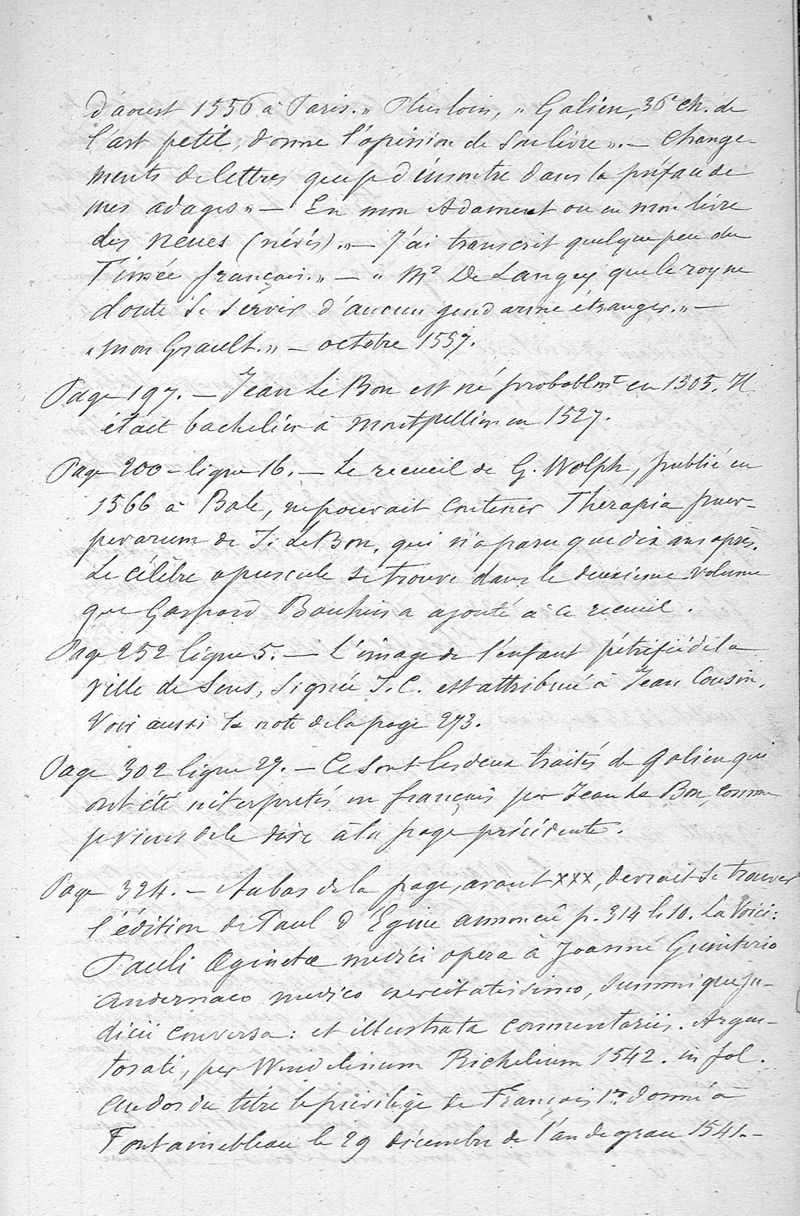 d'aoust 1556 à Paris." Plus loin, "Galien, 36e ch. de
l'art petit, donne l'opinion de son livre". — Change-
ments de lettres que je d'émontre dans la préface de
mes adages" — En mon Adament ou en mon livre
des neues (névés)." — J'ai transcrit quelque peu du
Timée français." — "Mr De Langey que le roy ne
doute se servir d'aucun gendarme étranger." —
"mon Grault." — octobre 1557.
Page 197. — Jean Le Bon est né probablemt en 1305. Il
était bachelier à Montpellier en 1527.
Page 200 - ligne 16. — Le recueil de G. Wolph, publié en
1566 à Bale, ne pouvait contenir Therapia puer-
perarum de J. Le Bon, qui n'a paru que dix ans après.
Le célèbre opuscule se trouve dans le deuxième volume
que Gaspard Bauhin a ajouté à ce recueil.
Page 252 ligne 5. — L'image de l'enfant pétrifié de la
ville de Sens, signée J. C. est attribué à Jean Cousin.
Voir aussi la note de la page 273.
Page 302 ligne 29. — Ce sont les deux traités de Galien qui
ont été interpretés en français par Jean Le Bon, comme
je viens de le dire à la page précédente.
Page 324. — Au bas de la page, avant XXX, devrait se trouver
l'édition de Paul d'Egine annoncée p. 314 l. 10. La Voici:
Pauli Æginetæ medici opera à Joanne Guinterio
Andernaco medico exercitatissimo, summique ju-
dicii conversa: et illustrata commentariis. Argen-
torati, per Windelinum Richelium 1542. in fol.
Au dos du titre le privilège de François 1er donné à
Fontainebleau le 29 décembre de l'an de grace 1541. —